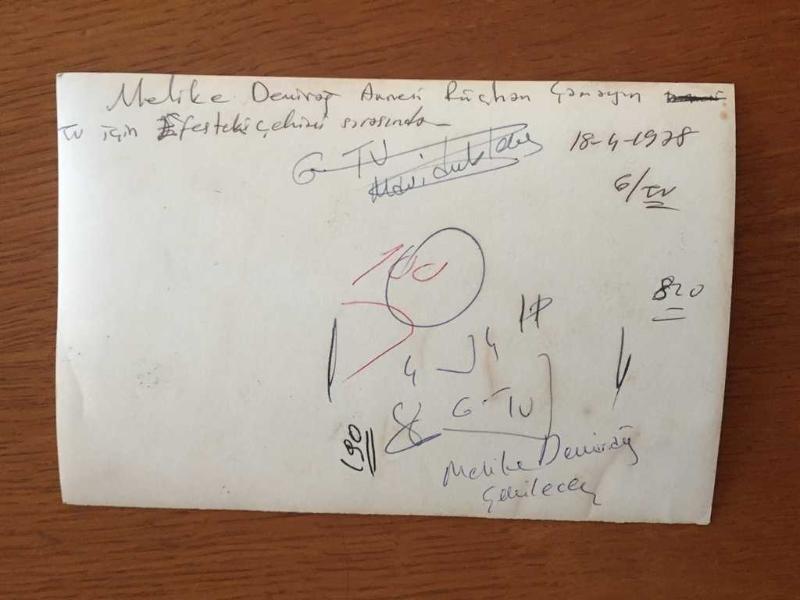 Melike Demirağ Annesi Rüçhan Çamayın
TV için Efesteki çekimi sırasında
G-TV
18-4-1978
6/TV
100
820
4 4
190
8 G-TV
Melike Demirağ
Çekilecek